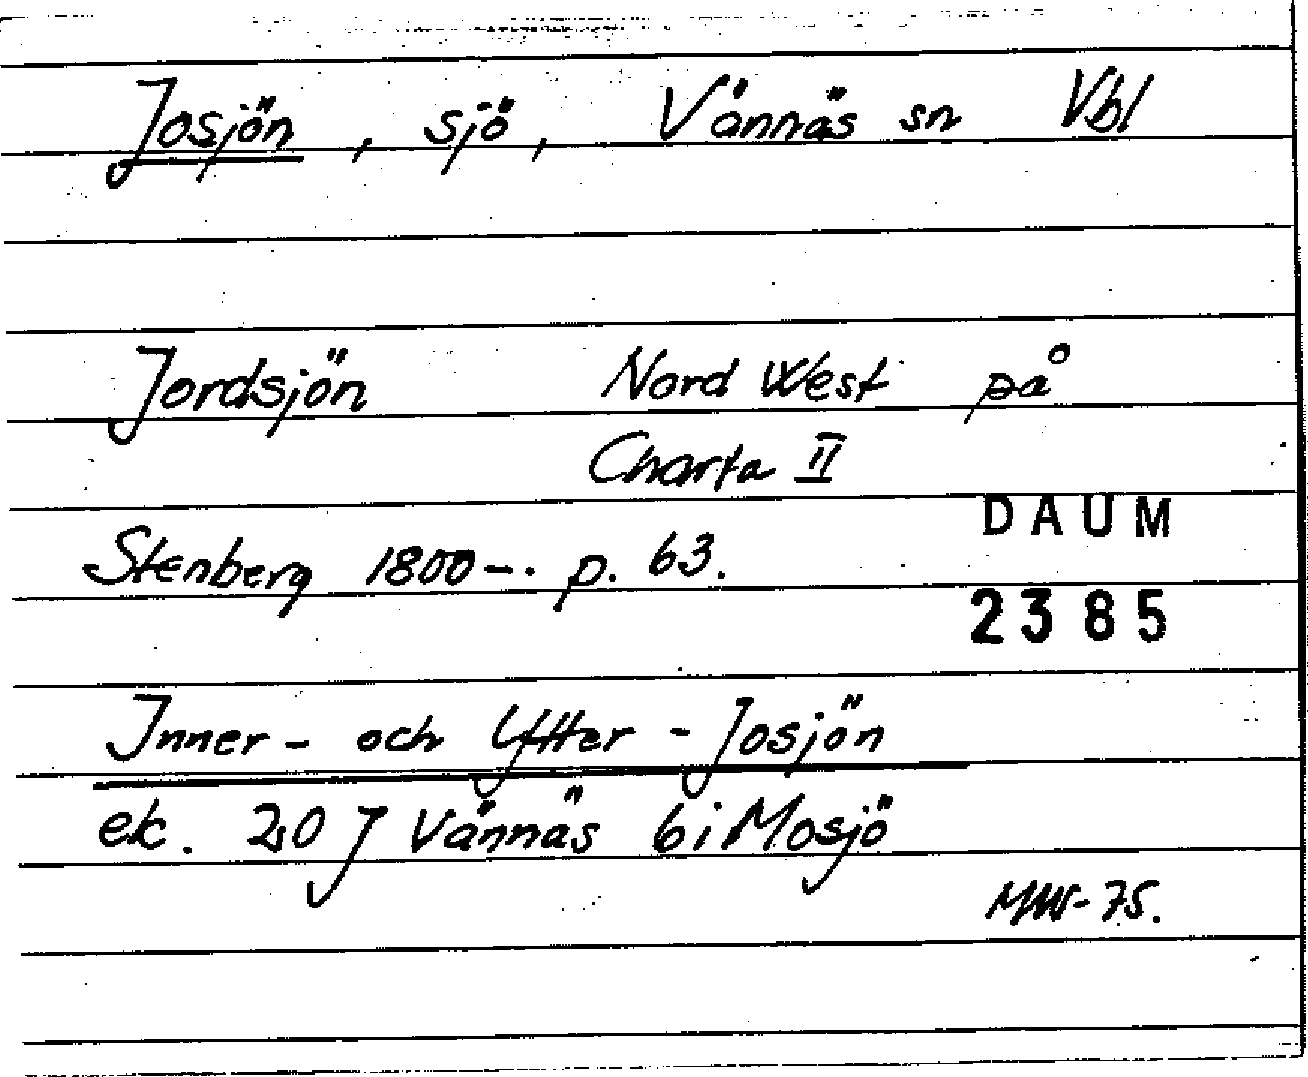 Josjön, sjö, Vännäs sn Vbl
Jordsjön Nord West på
Charta II
DAUM
Stenberg 1800-. p. 63.
2385
Inner- och Ytter-Josjön
ek. 20 J Vännäs 6i Mosjö
MW-75.